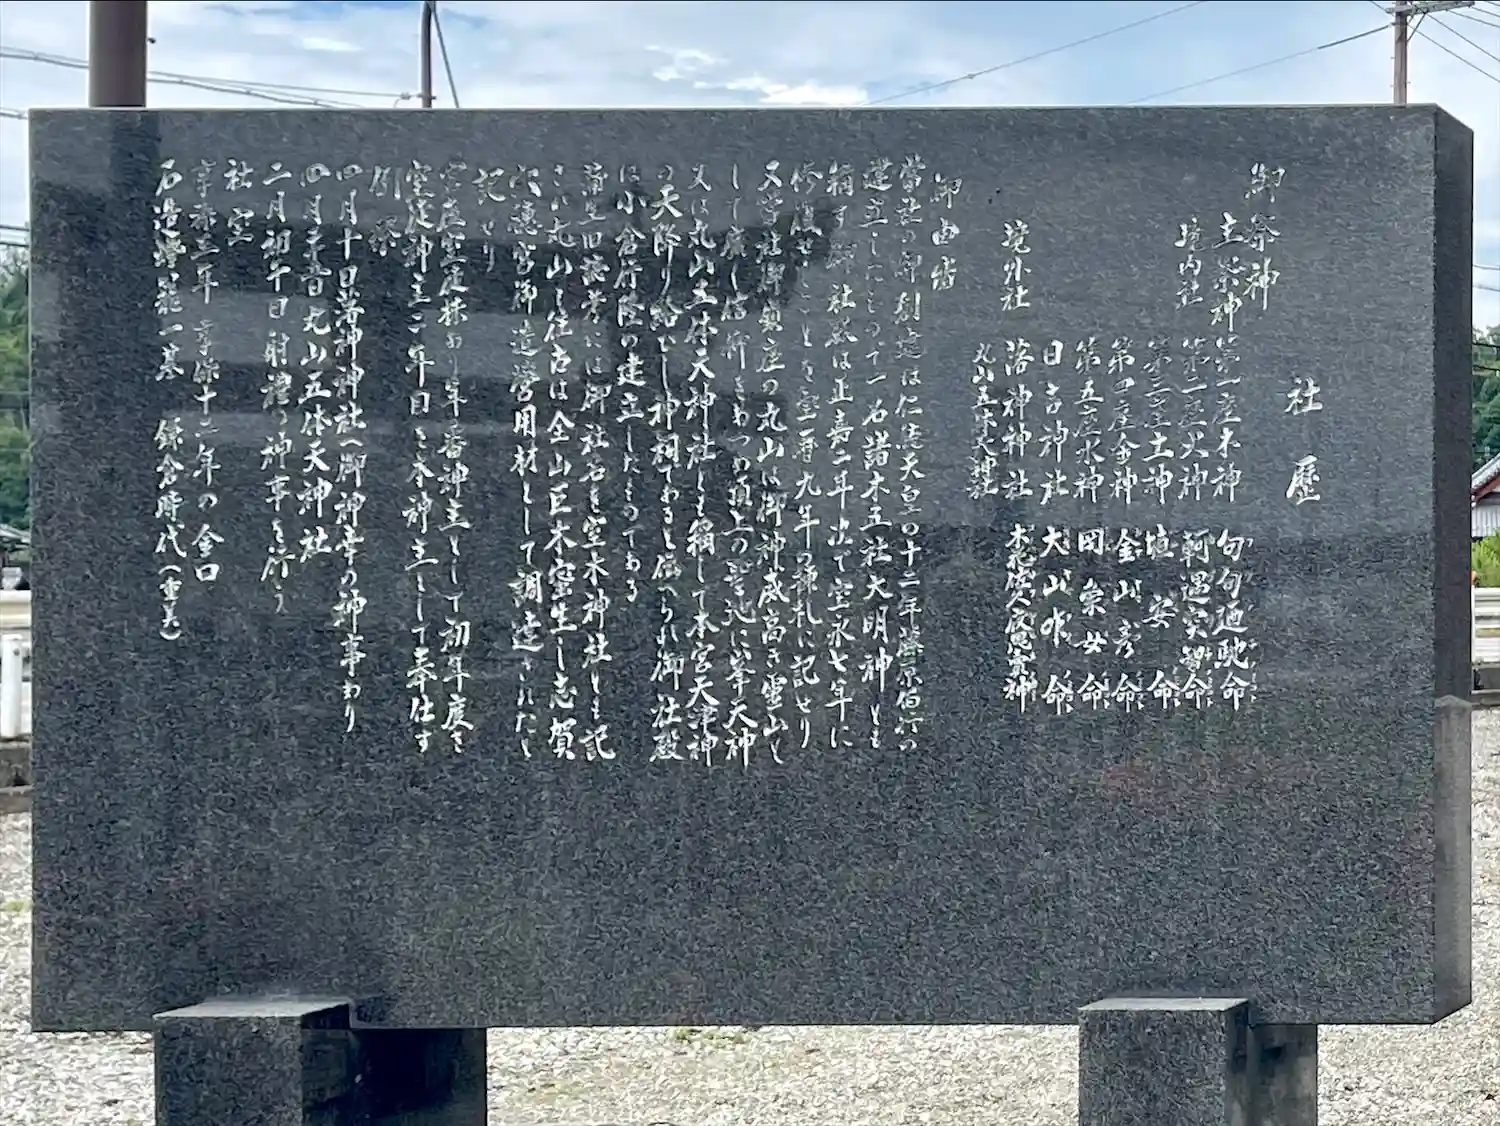 社歴
御祭神
主祭神 第一座木神 句句廼馳命
第二座火神 軻遇突智命
第三座土神 埴安命
第四座金神 金山彦命
第五座水神 罔象女命
境内社 日吉神社 大山咋命
境外社 落神神社
丸山五体天神社
御由緒
當社の御創建は仁徳天皇の十二年藤原伯行の
建立したものて一名諸木五社大明神とも
稱す御社殿は正嘉二年次で宝永七年に
修復せしことを宝暦九年の棟札に記せり
又當社御鎮座の丸山は御神威高き霊山と
して廣く信仰をあつめ頂上の聖地に峯天神
又は丸山五体天神社とも稱して本宮天津神
の天降り給ひし神祠てあると傳へられ御社殿
は小倉行隆の建立したものてある
蒲生旧跡考には御社名を空木神社とも記
さ 丸山も往古は全山巨木密生し志賀
穴穂宮御造営用材として調達されたと
記せり
宮座
当年番神主として初年度を
宮座神主二年目を本神主として奉仕す
例祭
四月十日落神神社へ御神幸の神事あり
四月 丸山五体天神社
二月初午日 神事を行う
社宝
享保十二年の金口
石造燈籠一基 鎌倉時代（重美）